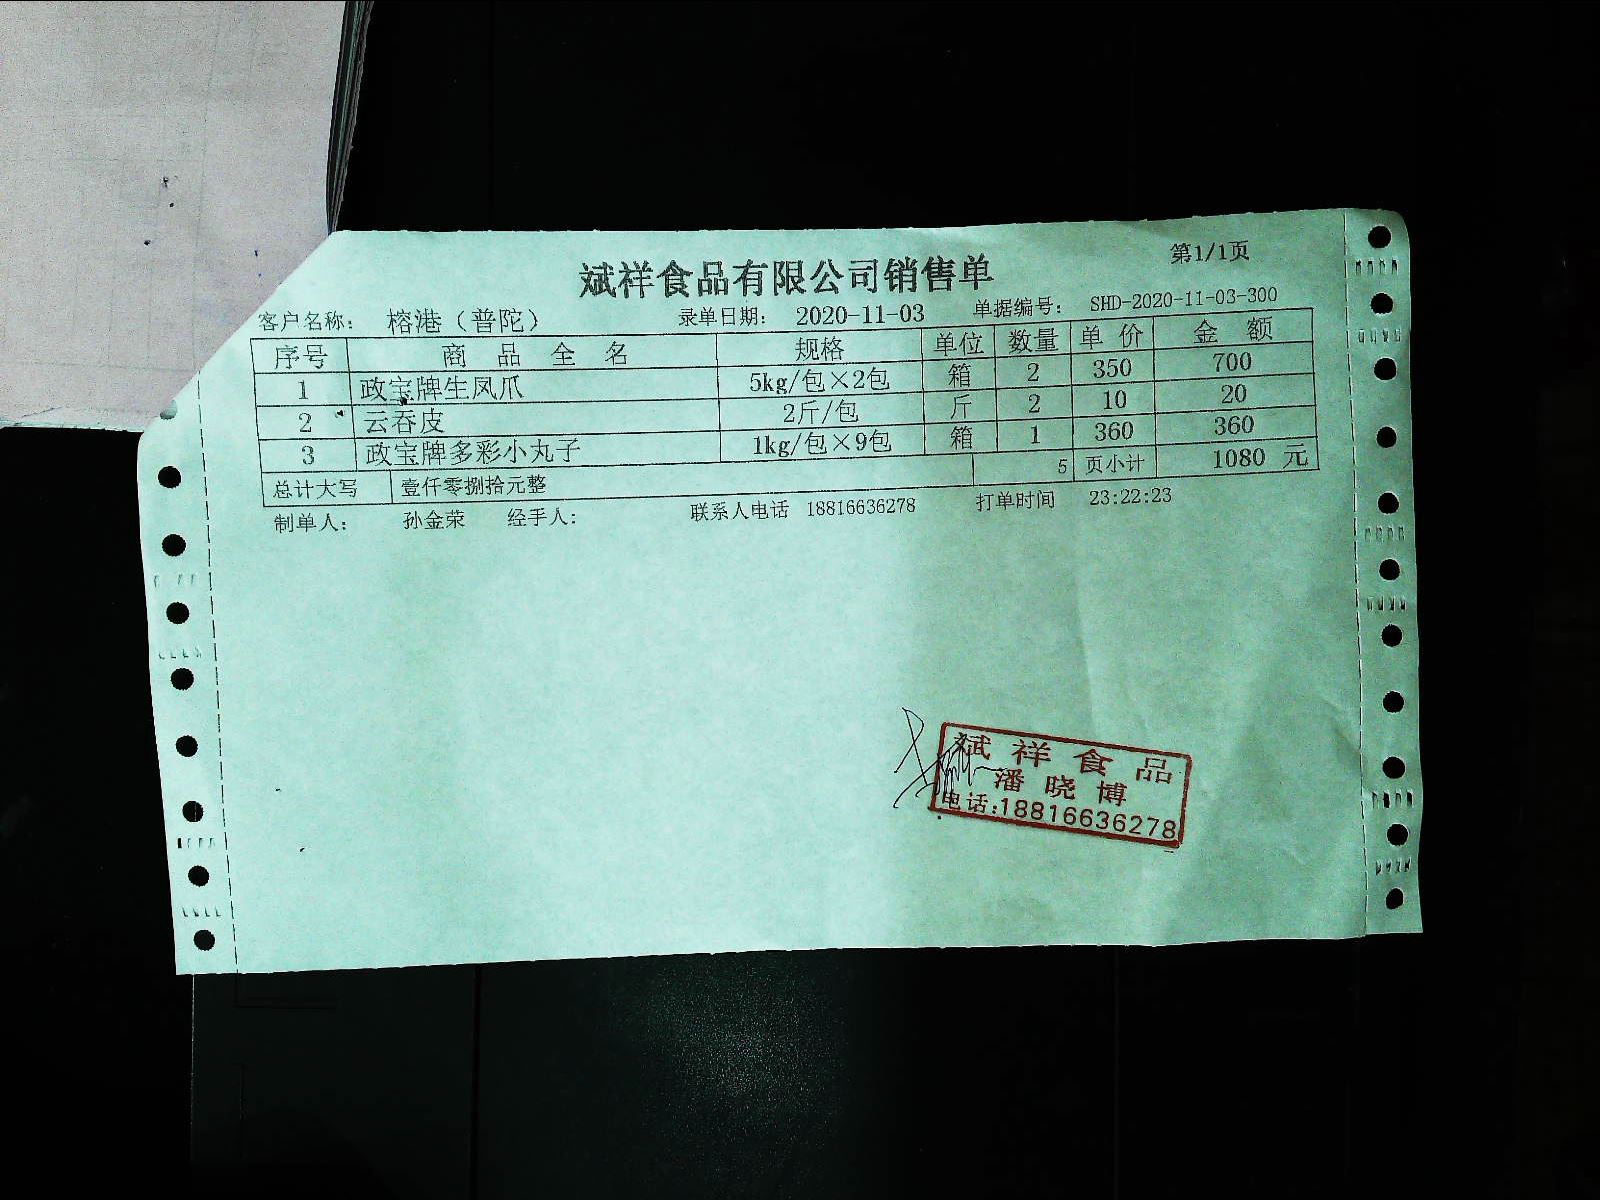 第1/1页
斌祥食品有限公司销售单
客户名称: 榕港（普陀） 录单日期: 2020-11-03 单据编号: SHD-2020-11-03-300
序号 商品全名 规格 单位 数量 单价 金额
1 政宝牌生凤爪 5kg/包×2包 箱 2 350 700
2 云吞皮 2斤/包 斤 2 10 20
3 政宝牌多彩小丸子 1kg/包×9包 箱 1 360 360
总计大写 壹仟零捌拾元整 5 页小计 1080 元
制单人: 孙金荣 经手人: 联系人电话 18816636278 打单时间 23:22:23
斌祥食品
潘晓博
电话:18816636278